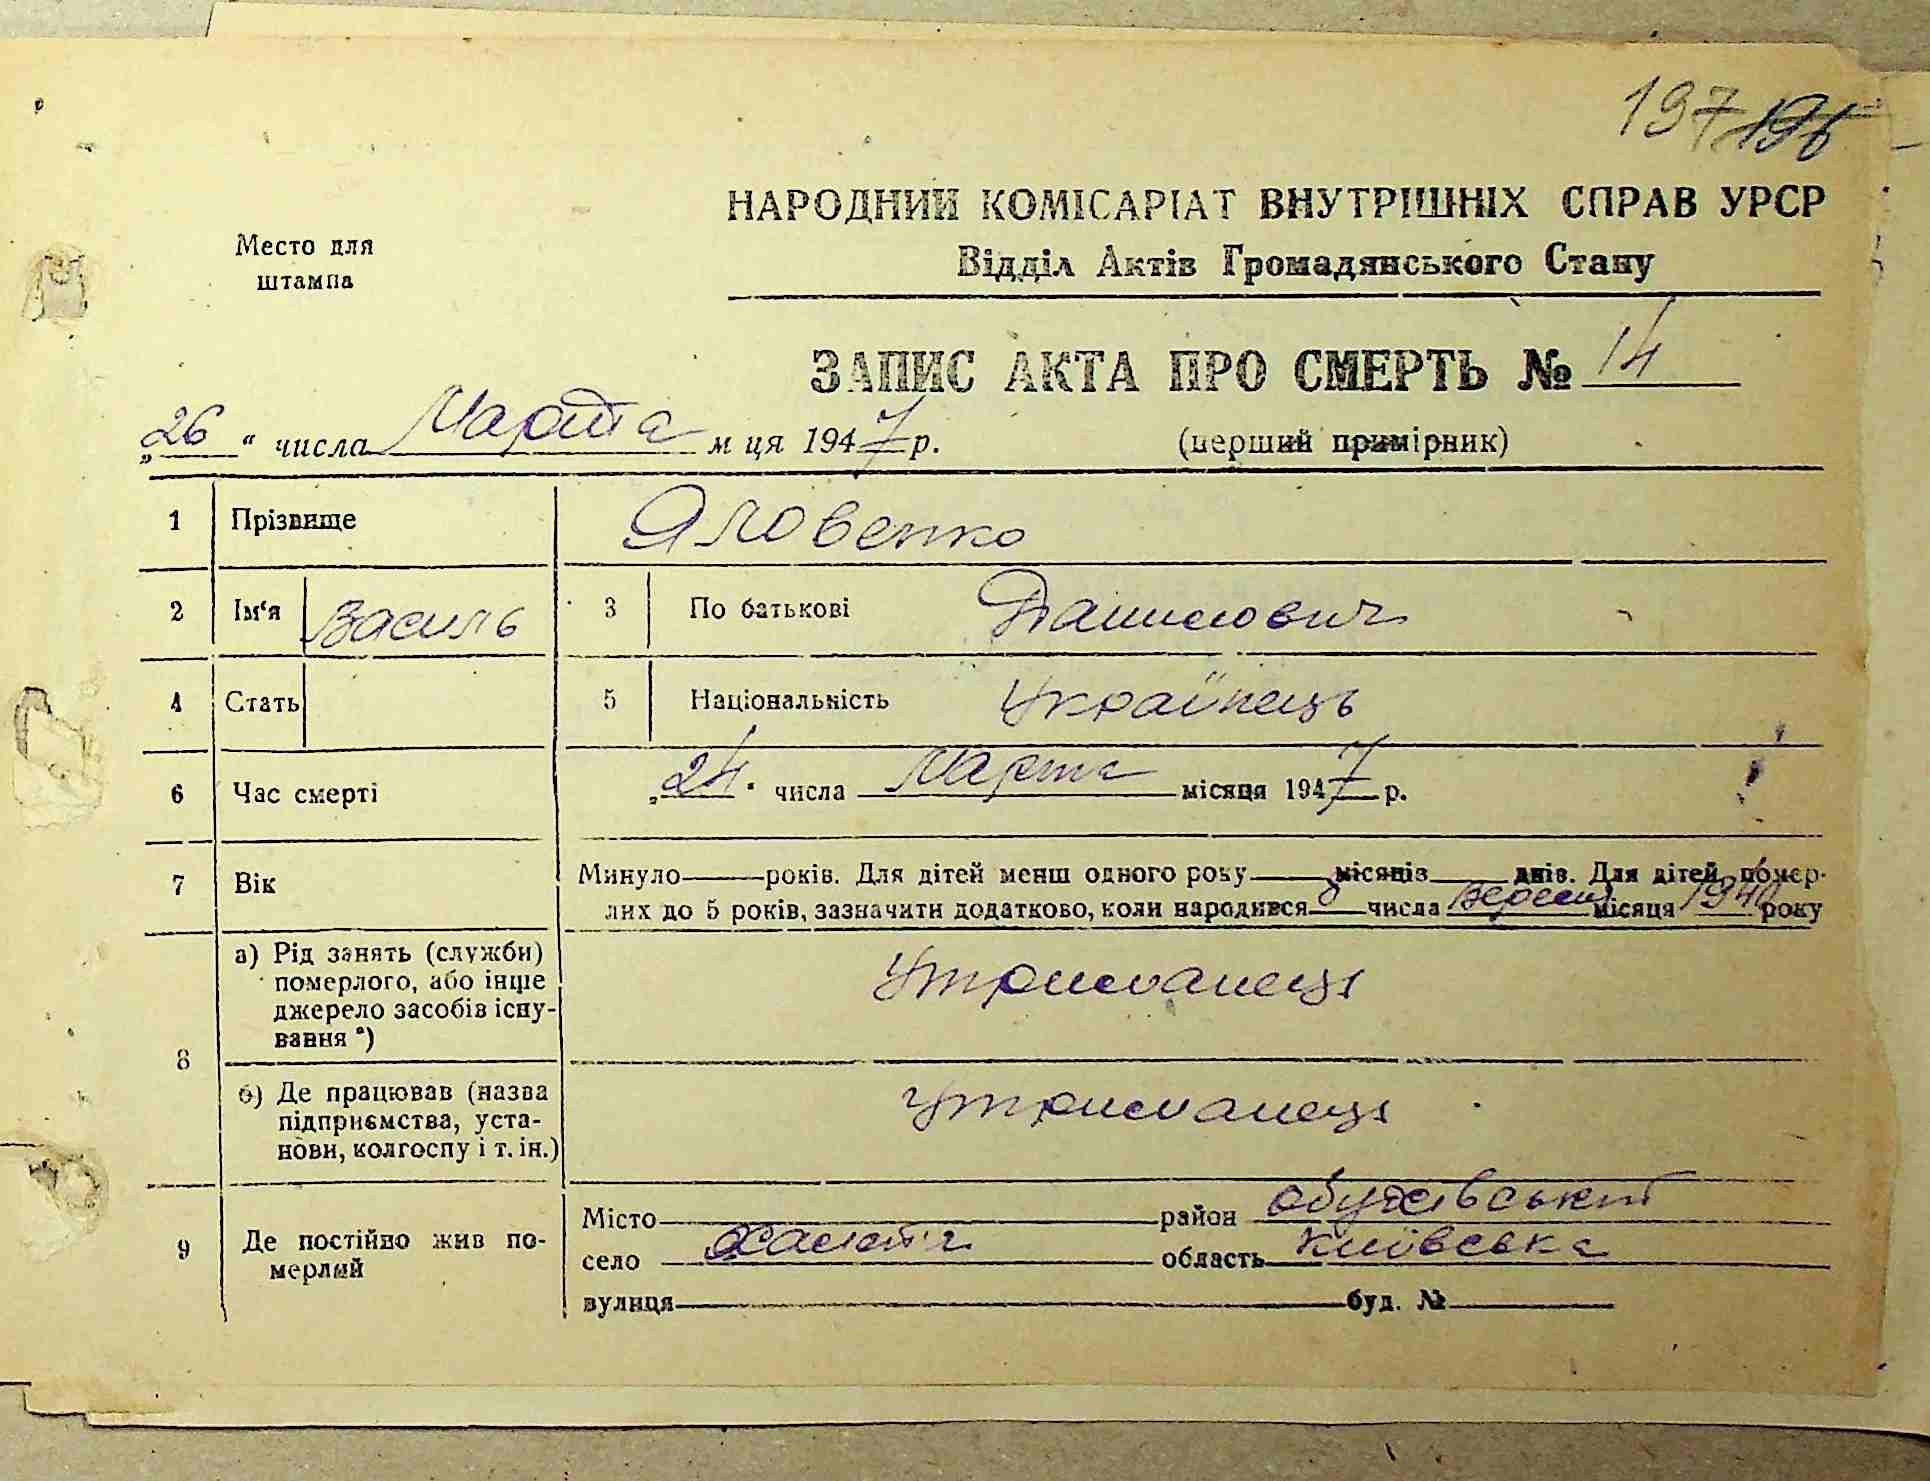 197 196
НАРОДНИЙ КОМІСАРІАТ ВНУТРІШНІХ СПРАВ УРСР
Место для
штампа
Відділ Актів Громадянського Стану
ЗАПИС АКТА ПРО СМЕРТЬ № 14
„26“ числа Марта м ця 1947 р.
(перший примірник)
1 Прізвище Яловенко
2 Ім‘я Василь 3 По батькові Данилович
4 Стать 5 Національність Українець
6 Час смерті „24“ числа Марта місяця 1947 р.
7 Вік Минуло років. Для дітей менш одного року місяців днів. Для дітей, помер-
лих до 5 років, зазначити додатково, коли народився числа Вересня місяця 1940 року
8 а) Рід занять (служби)
померлого, або інше
джерело засобів існу-
вання *)
Утриманець
б) Де працював (назва
підприємства, уста-
нови, колгоспу і т. ін.)
Утриманець
9 Де постійно жив по-
мерлий
Місто район Обухівський
село Халеп'я область Київська
вулиця буд. №